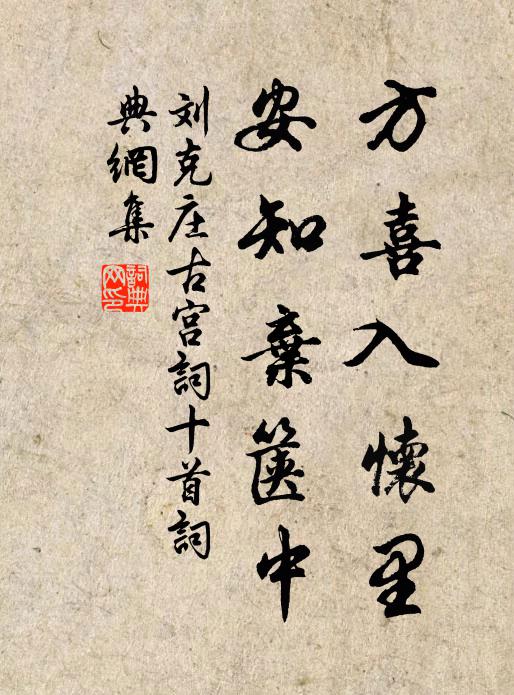 方喜入懷里
安知棄篋中
刘克庄古宫詞十首詞
典網集
詞典网印